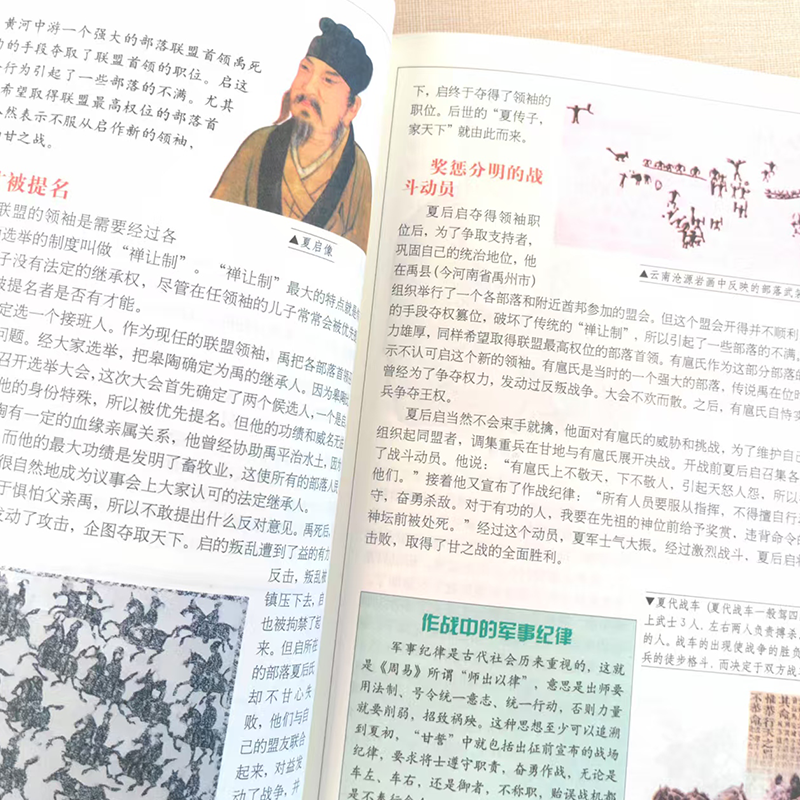 黄河中游一个强大的部落联盟首领禹死
的手段夺取了联盟首领的职位。启这
行为引起了一些部落的不满。尤其
希望取得联盟最高权位的部落首
然表示不服从启作新的领袖，
甘之战。
被提名
联盟的领袖是需要经过各
选举的制度叫做“禅让制”。“禅让制”最大的特点就是
子没有法定的继承权，尽管在任领袖的儿子常常会被优
被提名者是否有才能。
定选一个接班人。作为现任的联盟领袖，禹把各部落首领
问题。经大家选举，把皋陶确定为禹的继承人。因为皋陶
召开选举大会，这次大会首先确定了两个候选人，一个是启
他的身份特殊，所以被优先提名。但他的功绩和威名无
陶有一定的血缘亲属关系，他曾经协助禹平治水土，因
而他的最大功绩是发明了畜牧业，这使所有的部落人民
很自然地成为议事会上大家认可的法定继承人。
于惧怕父亲禹，所以不敢提出什么反对意见。禹死后，
发动了攻击，企图夺取天下。启的叛乱遭到了益的有力
反击，叛乱被
镇压下去，启
也被拘禁了起
来。但启所在
的部落夏后氏
却不甘心失
败，他们与自
己的盟友联合
起来，对益发
动了战争，并
▲夏启像
下，启终于夺得了领袖的
职位。后世的“夏传子，
家天下”就由此而来。
奖惩分明的战
斗动员
夏后启夺得领袖职
位后，为了争取支持者，
巩固自己的统治地位，他
在禹县(今河南省禹州市)
组织举行了一个各部落和附近酋邦参加的盟会。但这个盟会开得并不顺利
的手段夺权篡位，破坏了传统的“禅让制”，所以引起了一些部落的不满。
力雄厚，同样希望取得联盟最高权位的部落首领。有扈氏作为这部分部落的
示不认可启这个新的领袖。有扈氏是当时的一个强大的部落，传说禹在位时
曾经为了争夺权力，发动过反叛战争。大会不欢而散。之后，有扈氏自恃实
兵争夺王权。
夏后启当然不会束手就擒，他面对有扈氏的威胁和挑战，为了维护自己
组织起同盟者，调集重兵在甘地与有扈氏展开决战。开战前夏后启召集各
了战斗动员。他说：“有扈氏上不敬天，下不敬人，引起天怒人怨，所以
他们。”接着他又宣布了作战纪律：“所有人员要服从指挥，不得擅自行
守，奋勇杀敌。对于有功的人，我要在先祖的神位前给予奖赏，违背命令的
神坛前被处死。”经过这个动员，夏军士气大振。经过激烈战斗，夏后启将
击败，取得了甘之战的全面胜利。
▲云南沧源岩画中反映的部落武
作战中的军事纪律
军事纪律是古代社会历来重视的，这就
是《周易》所谓“师出以律”，意思是出师要
用法制、号令统一意志、统一行动，否则力量
就要削弱，招致祸殃。这种思想至少可以追溯
到夏初，“甘誓”中就包括出征前宣布的战场
纪律，要求将士遵守职责，奋勇作战，无论是
车左、车右，还是御者，不称职，贻误战机都
▼夏代战车（夏代战车一般驾四
上武士3人，左右两人负责搏杀
的人。战车的出现使战争的胜负
兵的徒步格斗，而决定于双方战